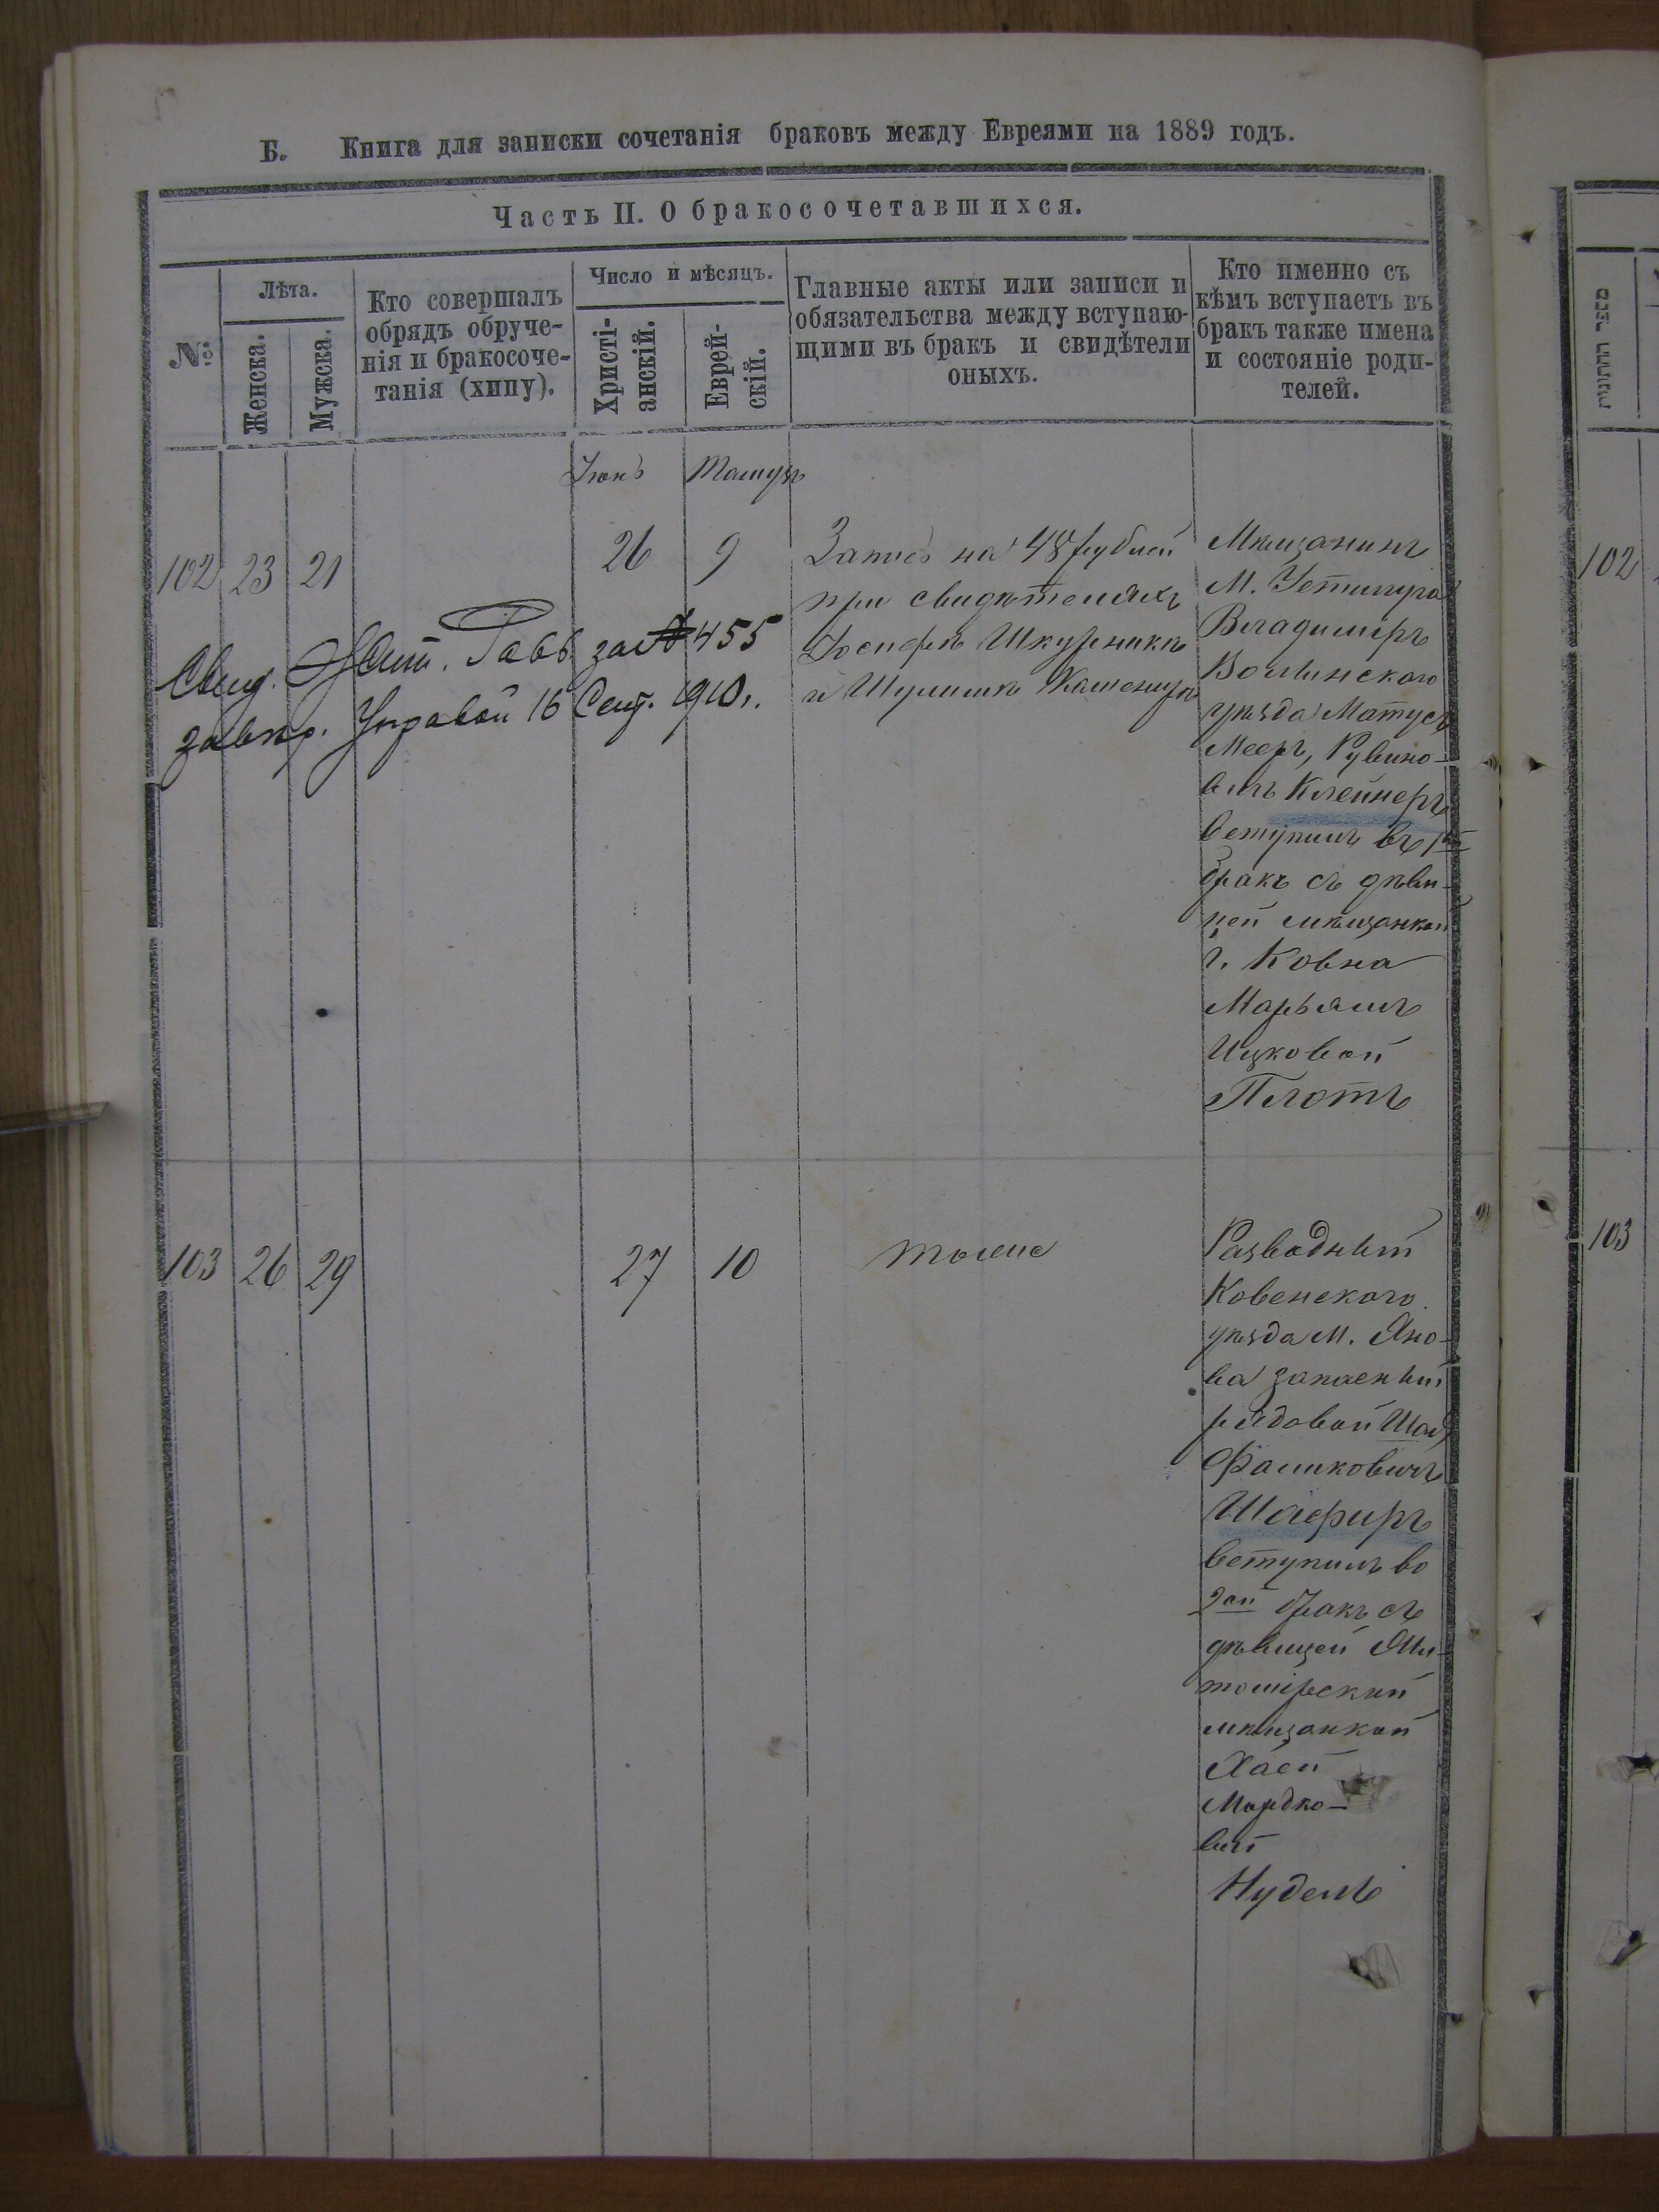 Б. Книга для записки сочетанія браковъ между Евреями на 1889 годъ.
Часть II. О бракосочетавшихся.
№
Лѣта.
Женска.
Мужска.
Кто совершалъ
обрядъ обруче-
нія и бракосоче-
танія (хипу).
Число и мѣсяцъ.
Христі-
анскій.
Еврей-
скій.
Главные акты или записи и
обязательства между вступаю-
щими въ бракъ и свидѣтели
оныхъ.
Кто именно съ
кѣмъ вступаетъ въ
бракъ также имена
и состояніе роди-
телей.
Іюнь Тамузъ
102 23 21
26 9
Запись на 48 рублей
при свидѣтеляхъ
Іосифѣ Шкурникѣ
и Шулимѣ
Мѣщанинъ
М. Устилуга
Владимиръ
Волынскаго
уѣзда Матусъ
Мееръ, Рувино-
вичъ Клейнеръ
вступилъ въ 1й
бракъ съ дѣви-
цей мѣщанкой
г. Ковна
Марьямъ
Ицковой
Плотъ
Свид. Жит. Равв. за № 455
завѣр. Управой 16 Сент. 1910 г.
103 26 29
27 10
тоже
Разводный
Ковенскаго
уѣзда М. Яно-
ва запасный
рядовой
Фаликовичъ
Шафиръ
вступилъ во
2ой бракъ съ
дѣвицей Жи-
томірской
мѣщанкой
Хаей
Мордко-
вой
Нудель
מספר החתונות
102
103